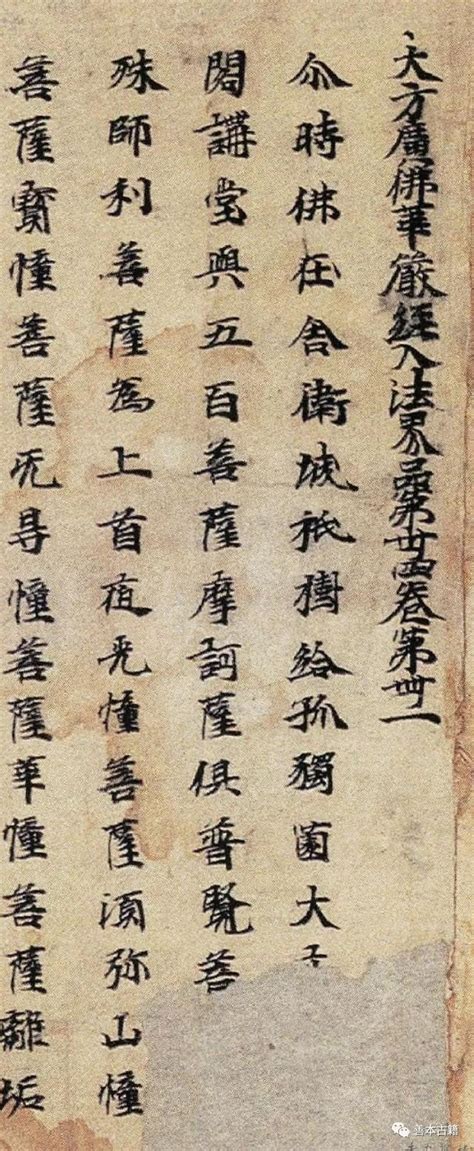 大方廣佛華嚴經入法界品第卅四卷第卌一
尒時佛在舍衛城祇樹給孤獨園大
閣講堂與五百菩薩摩訶薩俱普賢菩
殊師利菩薩為上首夜光幢菩薩須弥山幢
菩薩寶幢菩薩无㝵幢菩薩華幢菩薩離垢
善本古籍